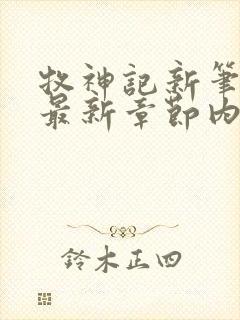 牧神記新筆
最新章節內
鈴木正四